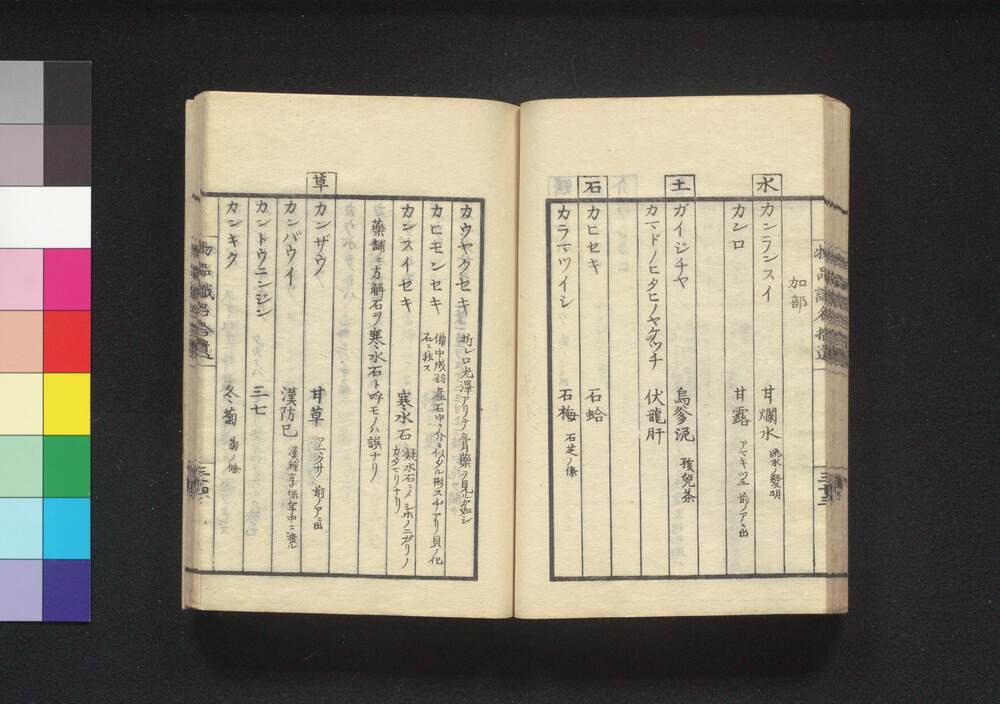 加部
水
カンランスイ 甘爛水 流水ノ發明
カンロ 甘露 アマキツユ 前ノアニ出
土
ガイジチヤ 烏爹泥 孩兒茶
カマドノヒタヒノヤケツチ 伏龍肝
石
カヒセキ 石蛤
カラマツイシ 石梅 石芝ノ條
カウヤクセキ 光澤アリテ膏藥ヲ見ル如シ
カヒモンセキ 備中成羽產石中ニ介ニ似タル形スヂアリ貝ノ化
石ニ非ス
カンスイセキ 寒水石 凝水石ニメシホノニガリノ
カタマリナリ
藥舗ニ方解石ヲ寒水石ト呼モノハ誤ナリ
草
カンザウ 甘草 アマクサ 前ノアニ出
カンバウイ 漢防已 漢種享保年中ニ渡ル
カントウニンジン 三七
カンキク 冬菊 菊ノ條
物品識名拾遺